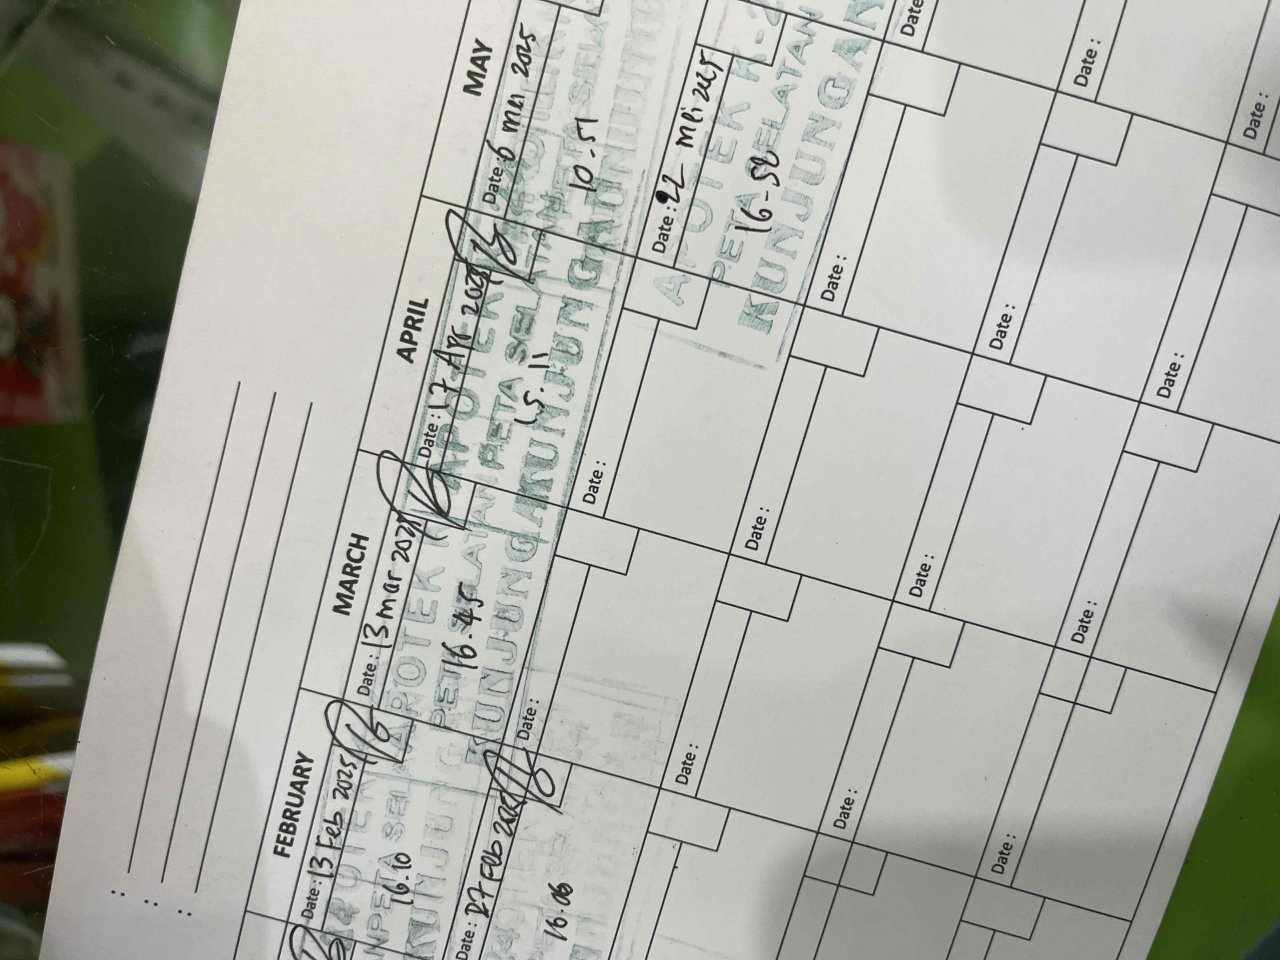 FEBRUARY
Date : 13 Feb 2025
16.10
KUNJUNG
Date : 27 Feb 2025
16.06
MARCH
Date : 13 Mar 2025
APOTEK K
PETA SELATAN
16.45
KUNJUNGAN
Date :
Date :
Date :
Date :
APRIL
Date : 17 Apr 2025
APOTEK K
PETA SELATAN
15.11
KUNJUNGAN
Date :
Date :
Date :
Date :
MAY
Date : 6 Mei 2025
10.51
Date : 22 Mei 2025
APOTEK K-2
PETA SELATAN
16-52
KUNJUNGAN
Date :
Date :
Date :
Date :
Date :
Date :